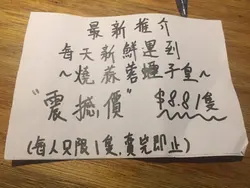 最新推介
每天新鮮運到
~燒蒜蓉蟶子皇~
"震撼價" $8.81隻
(每人只限1隻,賣完即止)